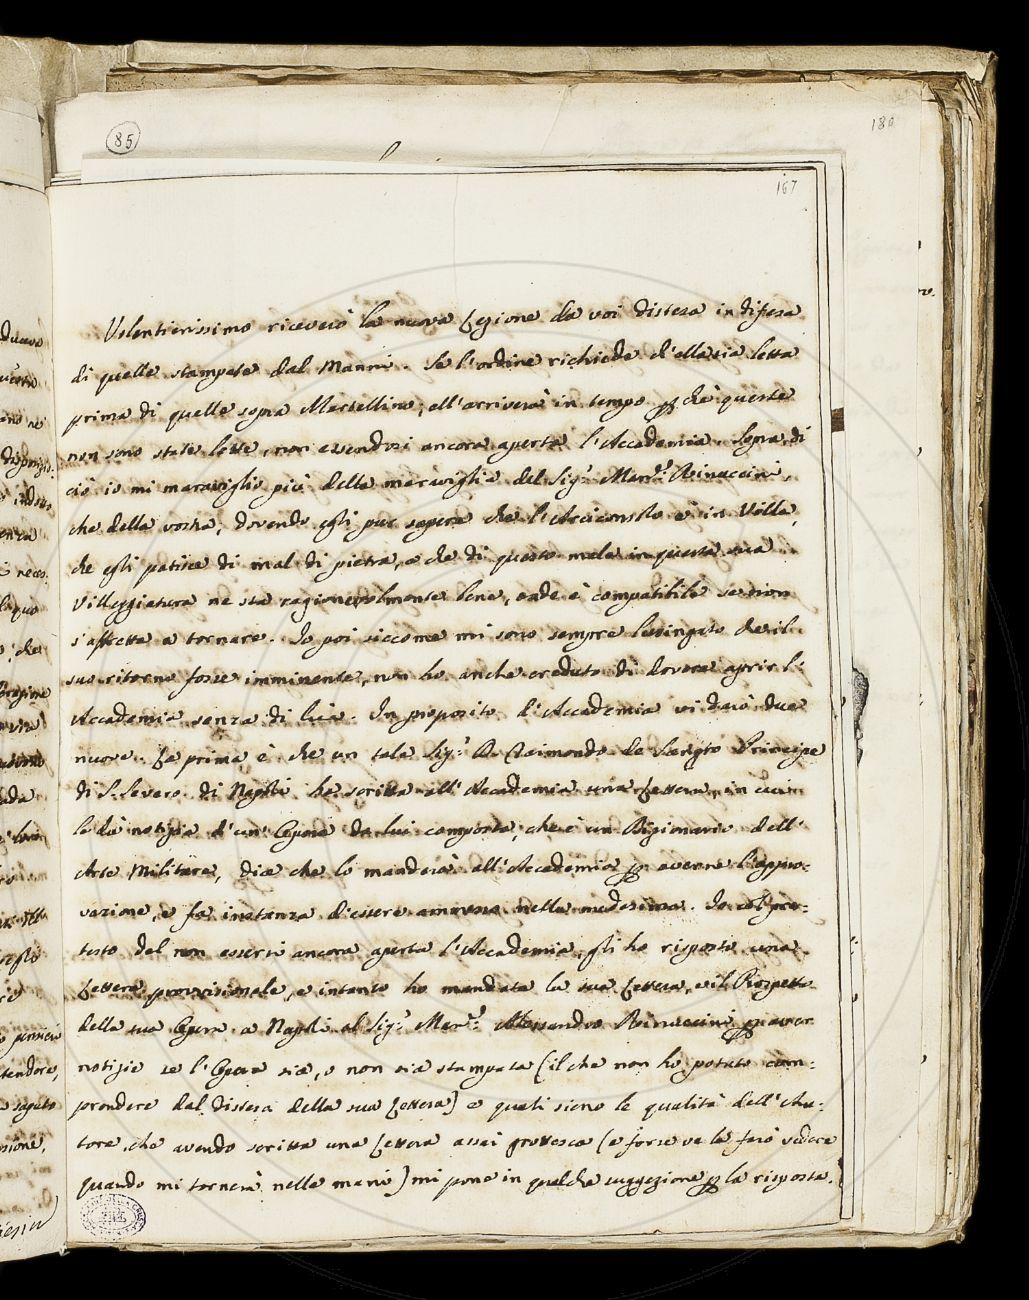 85
180
167
Volentierissimo riceverò la nuova Lezione da voi distesa in difesa
di quelle stampate dal Manni. Se l'ordine richiede ch'ella sia letta
prima di quelle sopra Martellino, ell'arriverà in tempo p chè queste
non sono state lette, non essendosi ancora aperta l'Accademia. Sopra di
ciò io mi maraviglio più della maraviglia del Sig.r March.e Rinuccini,
che della vostra, dovendo egli pur sapere che l'Arciconsolo è in Villa,
che egli patisce di mal di pietra, e che di questo male in questa sua
Villeggiatura ne sta ragionevolmente bene, onde è compatibile se non
s'affretta a tornare. Io poi siccome mi sono sempre lusingato che il
suo ritorno fosse imminente, non ho anche creduto di dovere aprir l'
Accademia senza di lui. In proposito d'Accademia vi darò due
nuove. La prima è che un tale Sig.r D. Raimondo de Sangro Principe
di S. Severo di Napoli ha scritta all'Accademia una Lettera, in cui
le dà notizia d'un'Opera da lui composta, che è un Dizionario dell'
Arte Militare, dice che lo manderà all'Accademia p averne l'appro-
vazione, e fa instanza d'essere ammesso nella medesima. Io col pre-
testo del non essersi ancora aperta l'Accademia, gli ho risposto una
Lettera provvisionale, e intanto ho mandata la sua Lettera, e il Prospetto
della sua Opera a Napoli al Sig.r March.e Alessandro Rinuccini p aver
notizie se l'Opera sia, o non sia stampata (il che non ho potuto com-
prendere dal distesa della sua Lettera) e quali sieno le qualità dell'Au-
tore, che avendo scritta una Lettera assai grottesca (e forse ve la farò vedere
quando mi tornerà nelle mani) mi pone in qualche suggezione p la risposta.